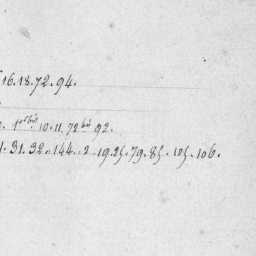 16.18.72.94.
1er bis 10.11.72 bis 92.
31.32.144. 2.19.25.79.85.105.106.